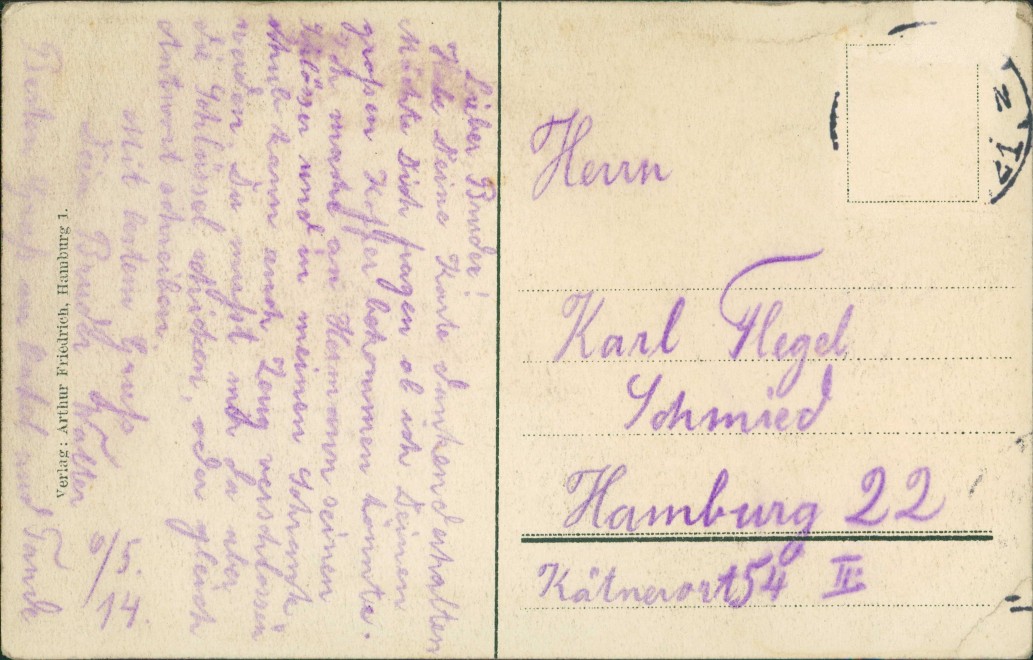 Lieber Bruder!
Habe Deine Karte dankend erhalten
Möchte Dich fragen ob ich Deinen
großen Koffer bekommen könnte.
Ich mache an Hermann seinen
Schlösser und in meinen Schrank
kann auch Zeug verschlossen
werden, Du mußt mir da aber
die Schlüssel schicken, oder gleich
Antwort schreiben.
Mit bestem Gruß
Dein Bruder Walter
5./14.
Besten Gruß an Onkel und Tante
Verlag: Arthur Friedrich, Hamburg 1.
Herrn
Karl Flegel
Schmied
Hamburg 22
Kätnerort 54 III